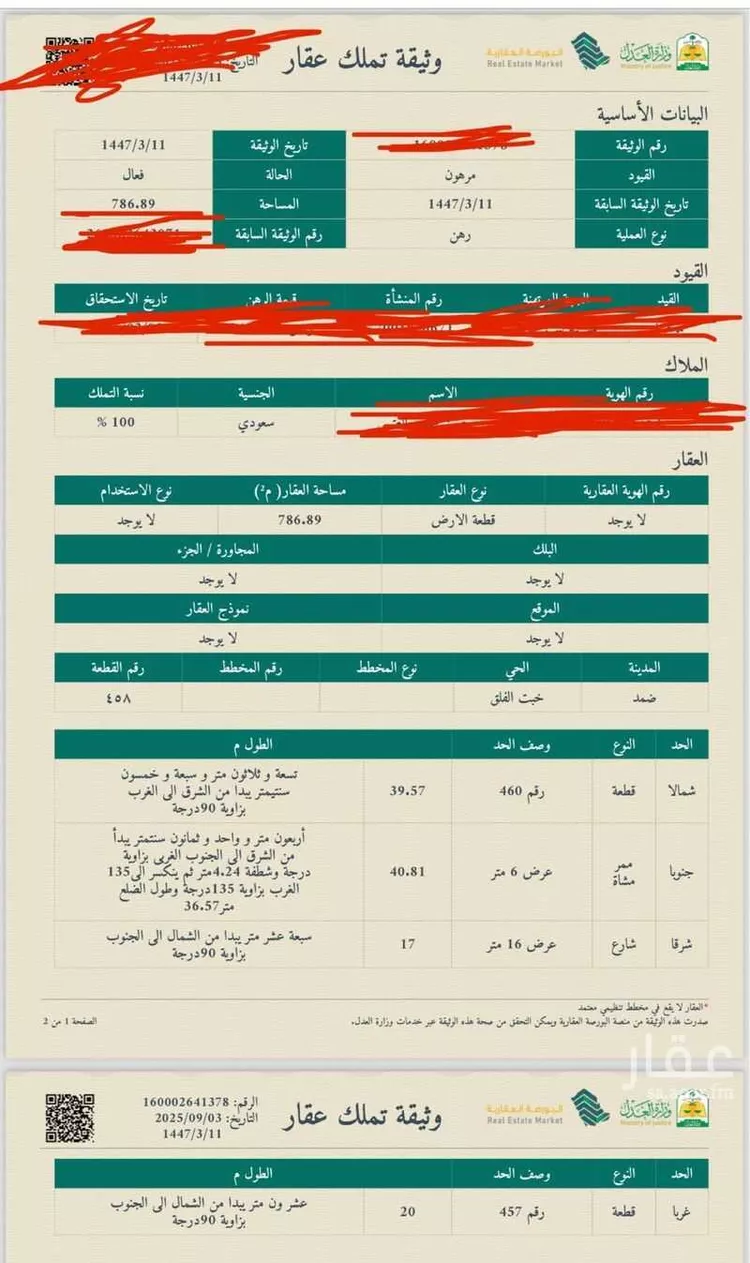 وزارة العدل
Ministry of Justice
البورصة العقارية
Real Estate Market
وثيقة تملك عقار
التاريخ:
1447/3/11
البيانات الأساسية
رقم الوثيقة تاريخ الوثيقة 1447/3/11
القيود مرهون الحالة فعال
تاريخ الوثيقة السابقة 1447/3/11 المساحة 786.89
نوع العملية رهن رقم الوثيقة السابقة
القيود
القيد رقم المنشأة قيمة الرهن تاريخ الاستحقاق
الملاك
رقم الهوية الاسم الجنسية نسبة التملك
سعودي 100 %
العقار
رقم الهوية العقارية نوع العقار مساحة العقار( م²) نوع الاستخدام
لا يوجد قطعة الارض 786.89 لا يوجد
البلك المجاورة / الجزء
لا يوجد لا يوجد
الموقع نموذج العقار
لا يوجد لا يوجد
المدينة الحي نوع المخطط رقم المخطط رقم القطعة
ضمد خبت الفلق ٤٥٨
الحد النوع وصف الحد الطول م
شمالا قطعة رقم 460 39.57 تسعة و ثلاثون متر و سبعة و خمسون
سنتيمتر يبدا من الشرق الى الغرب
بزاوية 90درجة
جنوبا ممر مشاة عرض 6 متر 40.81 أربعون متر و واحد و ثمانون سنتمتر يبدأ
من الشرق الى الجنوب الغربي بزاوية
135درجة وشطفة 4.24متر ثم ينكسر الى
الغرب بزاوية 135درجة وطول الضلع
36.57متر
شرقا شارع عرض 16 متر 17 سبعة عشر متر يبدا من الشمال الى الجنوب
بزاوية 90درجة
*العقار لا يقع في مخطط تنظيمي معتمد
صدرت هذه الوثيقة من منصة البورصة العقارية ويمكن التحقق من صحة هذه الوثيقة عبر خدمات وزارة العدل.
الصفحة 1 من 2
عقار
وزارة العدل
Ministry of Justice
البورصة العقارية
Real Estate Market
وثيقة تملك عقار
الرقم: 160002641378
التاريخ: 2025/09/03
1447/3/11
الحد النوع وصف الحد الطول م
غربا قطعة رقم 457 20 عشر ون متر يبدا من الشمال الى الجنوب
بزاوية 90درجة